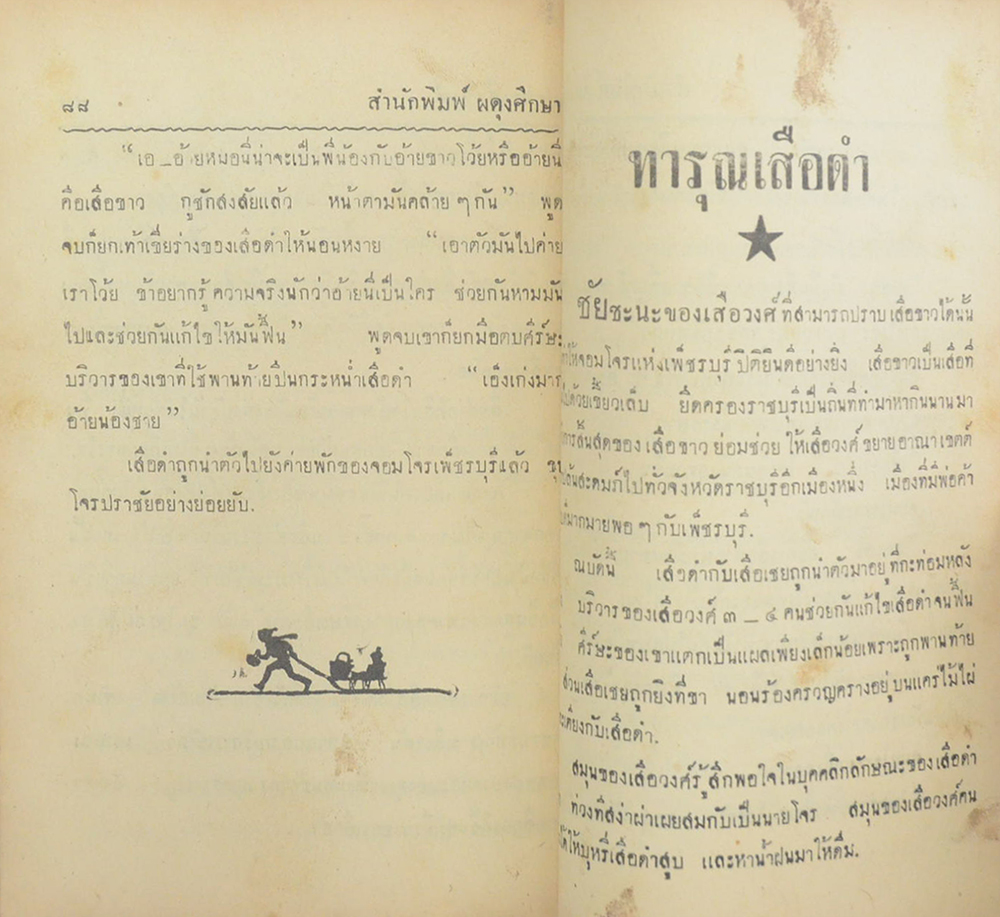 ๘๘
สำนักพิมพ์ ผดุงศึกษา
“เอ _อ้ายหมอนี่น่าจะเป็นพี่น้องกับอ้ายขาวโว้ยหรืออ้ายนี่
คือเสือขาว กูชักสงสัยแล้ว หน้าตามันคล้าย ๆ กัน” พูด
จบก็ยกเท้าเขี่ยร่างของเสือดำให้นอนหงาย “เอาตัวมันไปค่าย
เราโว้ย ข้าอยากรู้ ความจริงนักว่าอ้ายนี่เป็นใคร ช่วยกันหามมัน
ไปและช่วยกันแก้ไขให้มันฟื้น” พูดจบเขาก็ยกมือตบศีร์ษะ
บริวารของเขาที่ใช้พานท้ายปืนกระหน่ำเสือดำ “เอ็งเก่งมาก
อ้ายน้องชาย”
เสือดำถูกนำตัวไปยังค่ายพักของจอมโจรเพ็ชรบุรีแล้ว
โจรปราชัยอย่างย่อยยับ.
ทารุณเสือดำ
ชัยชะนะของเสือวงศ์ ที่สามารถปราบ เสือขาวได้นั้น
ให้จอมโจรแห่งเพ็ชรบุรี ปิติยินดีอย่างยิ่ง เสือขาวเป็นเสือที่
ด้วยเขี้ยวเล็บ ยึดครองราชบุรีเป็นถิ่นที่ทำมาหากินนานมา
การสิ้นสุดของ เสือขาว ย่อมช่วย ให้เสือวงศ์ ขยาย อาณาเขตต์
สะดมภ์ไปทั่วจังหวัดราชบุรีอีกเมืองหนึ่ง เมืองที่มีพ่อค้า
มากมายพอ ๆ กับเพ็ชรบุรี.
ณบัดนี้ เสือดำกับเสือเชยถูกนำตัวมาอยู่ ที่กะท่อมหลัง
บริวารของเสือวงศ์ ๓ _ ๔ คนช่วยกันแก้ไขเสือดำจนฟื้น
ศีร์ษะของเขาแตกเป็นแผลเพียงเล็กน้อยเพราะถูกพานท้าย
ส่วนเสือเชยถูกยิงที่ขา นอนร้องครวญครางอยู่บนแคร่ไม้ไผ่
เคียงกับเสือดำ.
สมุนของเสือวงศ์รู้สึกพอใจในบุคคลิกลักษณะของเสือดำ
ท่วงทีสง่าผ่าเผยสมกับเป็นนายโจร สมุนของเสือวงศ์คน
ให้บุหรี่เสือดำสูบ และหาน้ำฝนมาให้ดื่ม.